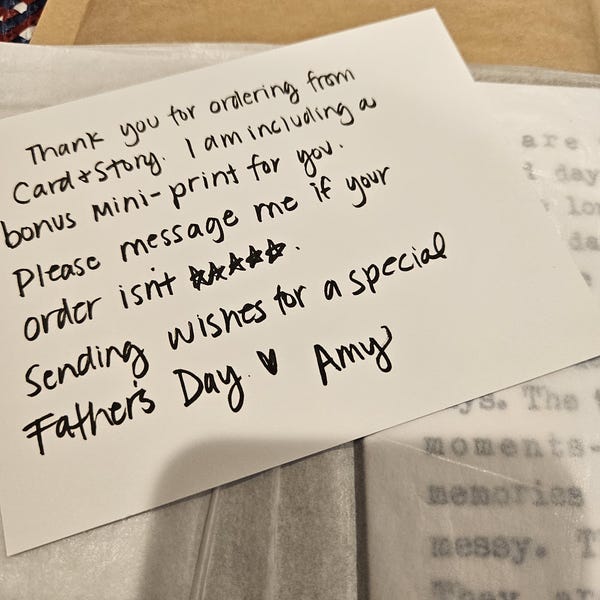 Thank you for ordering from
Card & Story. I am including a
bonus mini-print for you.
Please message me if your
order isn't ☆☆☆☆☆.
Sending wishes for a special
Father's Day. ♥ Amy
are
day
lo
da
ys. The
moments-
memories
messy. T
They ar